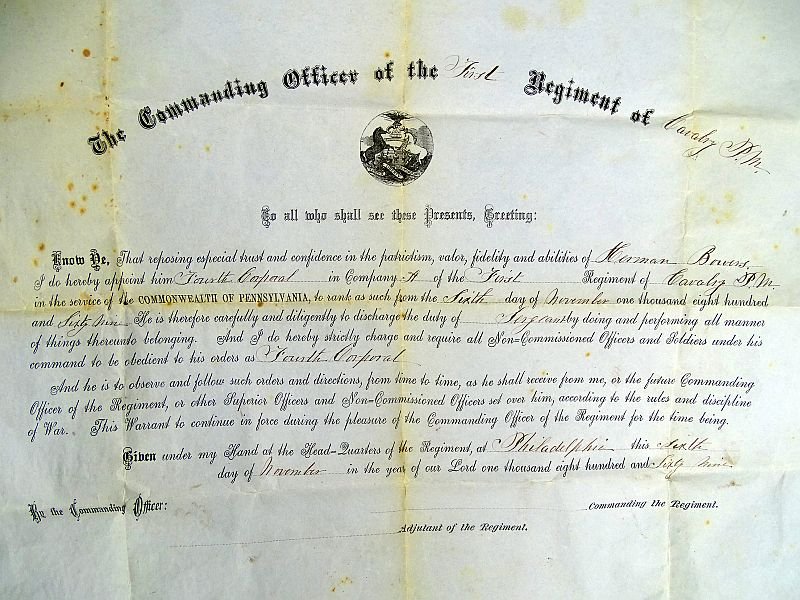 The Commanding Officer of the First Regiment of Cavalry P.M.
To all who shall see these Presents, Greeting:
Know Ye, That reposing especial trust and confidence in the patriotism, valor, fidelity and abilities of Herman Bowers
I do hereby appoint him Fourth Corporal in Company A of the First Regiment of Cavalry P.M
in the service of the COMMONWEALTH OF PENNSYLVANIA, to rank as such from the Sixth day of November one thousand eight hundred
and Sixty nine He is therefore carefully and diligently to discharge the duty of by doing and performing all manner
of things thereunto belonging. And I do hereby strictly charge and require all Non-Commissioned Officers and Soldiers under his
command to be obedient to his orders as Fourth Corporal
And he is to observe and follow such orders and directions, from time to time, as he shall receive from me, or the future Commanding
Officer of the Regiment, or other Superior Officers and Non-Commissioned Officers set over him, according to the rules and discipline
of War. This Warrant to continue in force during the pleasure of the Commanding Officer of the Regiment for the time being.
Given under my Hand at the Head-Quarters of the Regiment, at Philadelphia this Sixth
day of November in the year of our Lord one thousand eight hundred and Sixty nine
By the Commanding Officer:
Commanding the Regiment.
Adjutant of the Regiment.